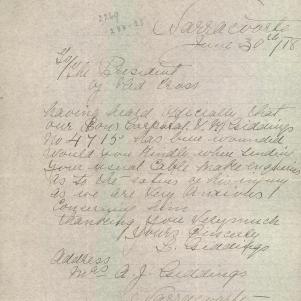 Yarraworta
June 30th/18
To/ The President
of Red Cross
having heard officially that
our Son Corporal V. M. Giddings
No 4715 has been wounded
Would you kindly when sending
your usual Cable make enquiries
as to the nature of his injury
as we are very anxious
concerning him
thanking you very much
Yours Sincerely
S. Giddings
Address
Mrs A. J. Giddings